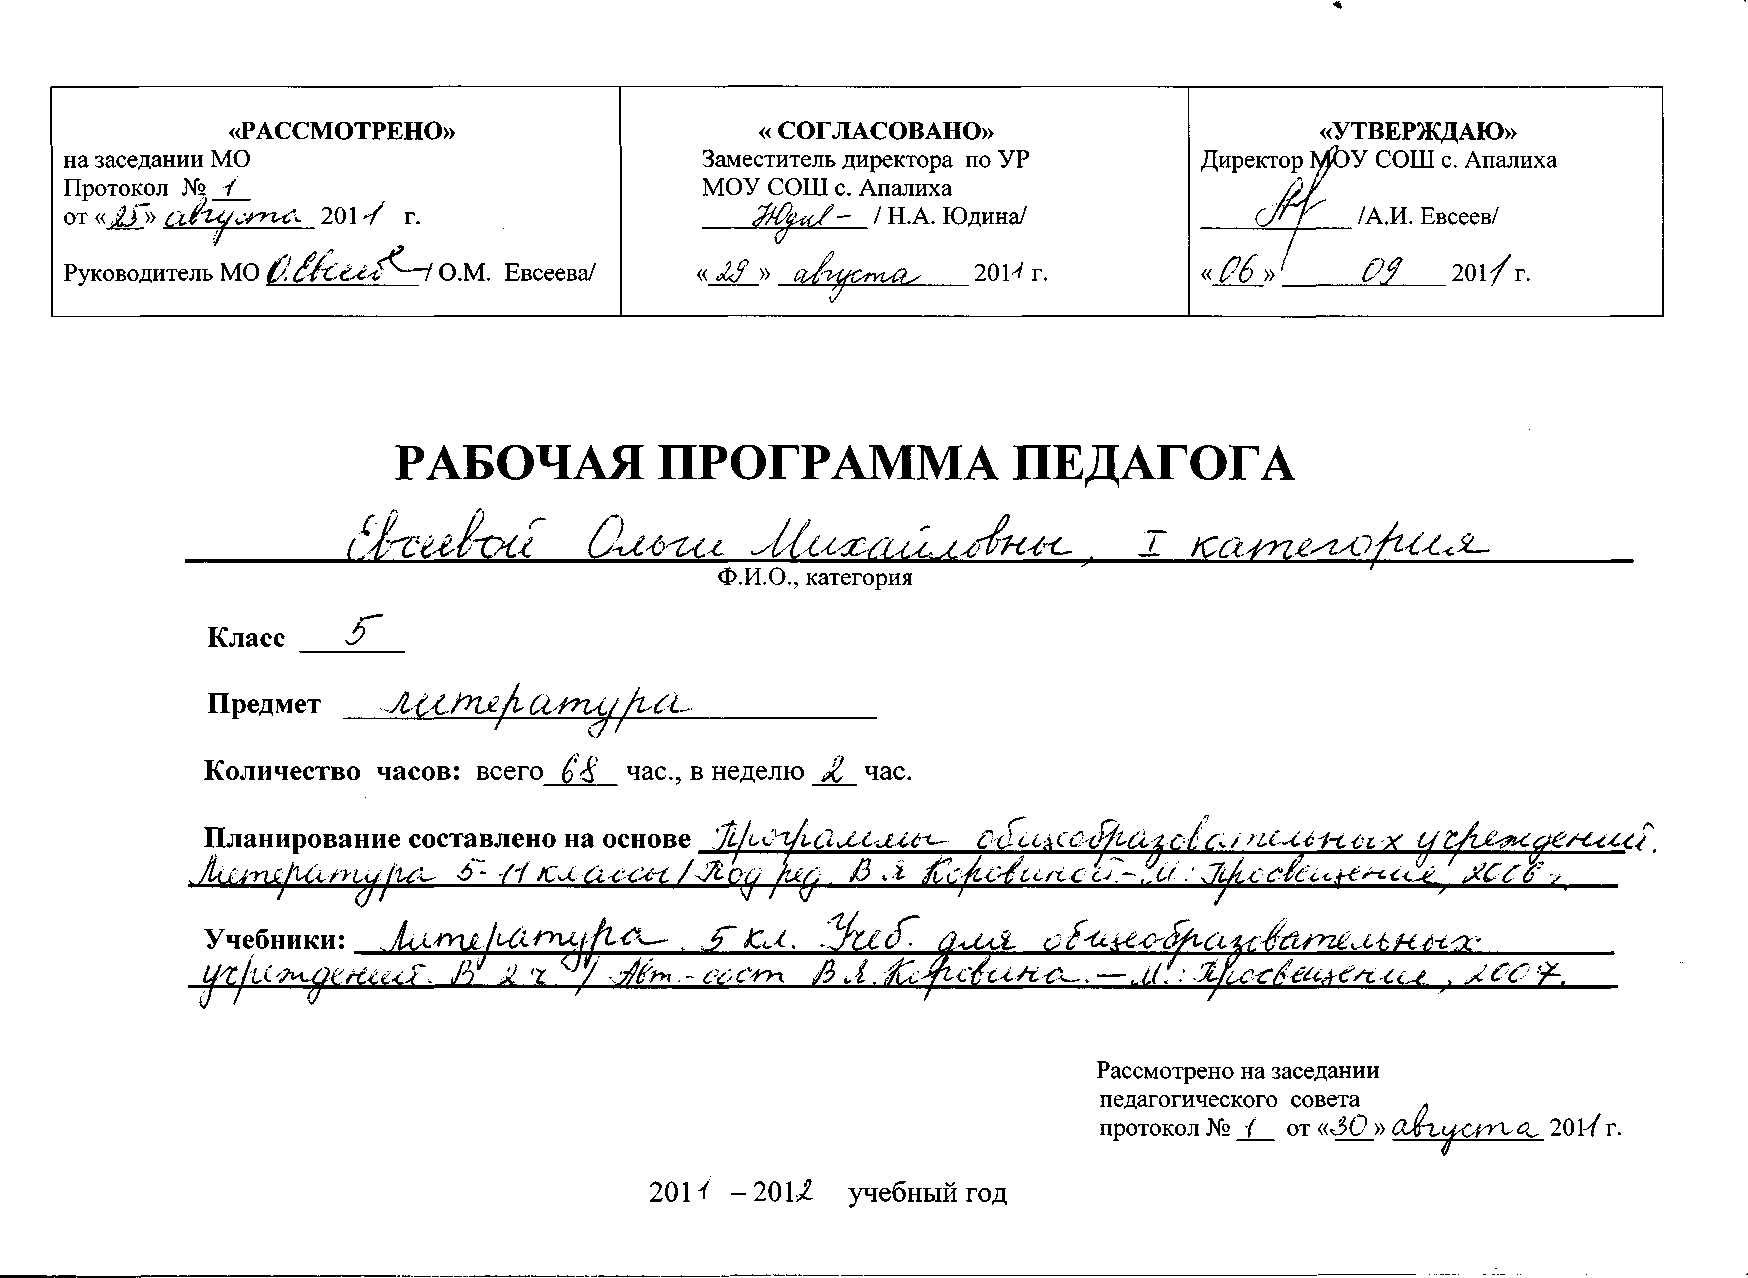 «РАССМОТРЕНО»
на заседании МО
Протокол № 1
от «25» августа 2011 г.
Руководитель МО О.Евсеева / О.М. Евсеева/
« СОГЛАСОВАНО»
Заместитель директора по УР
МОУ СОШ с. Апалиха
/ Н.А. Юдина/
« 29 » августа 2011 г.
«УТВЕРЖДАЮ»
Директор МОУ СОШ с. Апалиха
/А.И. Евсеев/
«06» 09 2011 г.
РАБОЧАЯ ПРОГРАММА ПЕДАГОГА
Евсеевой Ольги Михайловны, I категория
Ф.И.О., категория
Класс 5
Предмет литература
Количество часов: всего 68 час., в неделю 2 час.
Планирование составлено на основе Программы общеобразовательных учреждений.
Литература 5-11 классы / Под ред. В.Я Коровиной.- М.: Просвещение, 2006 г.
Учебники: Литература. 5 кл. Учеб. для общеобразовательных
учреждений. В 2 ч. / Авт.-сост В.Я.Коровина. – М.: Просвещение, 2007.
Рассмотрено на заседании
педагогического совета
протокол № 1 от «30» августа 2011 г.
2011 – 2012 учебный год